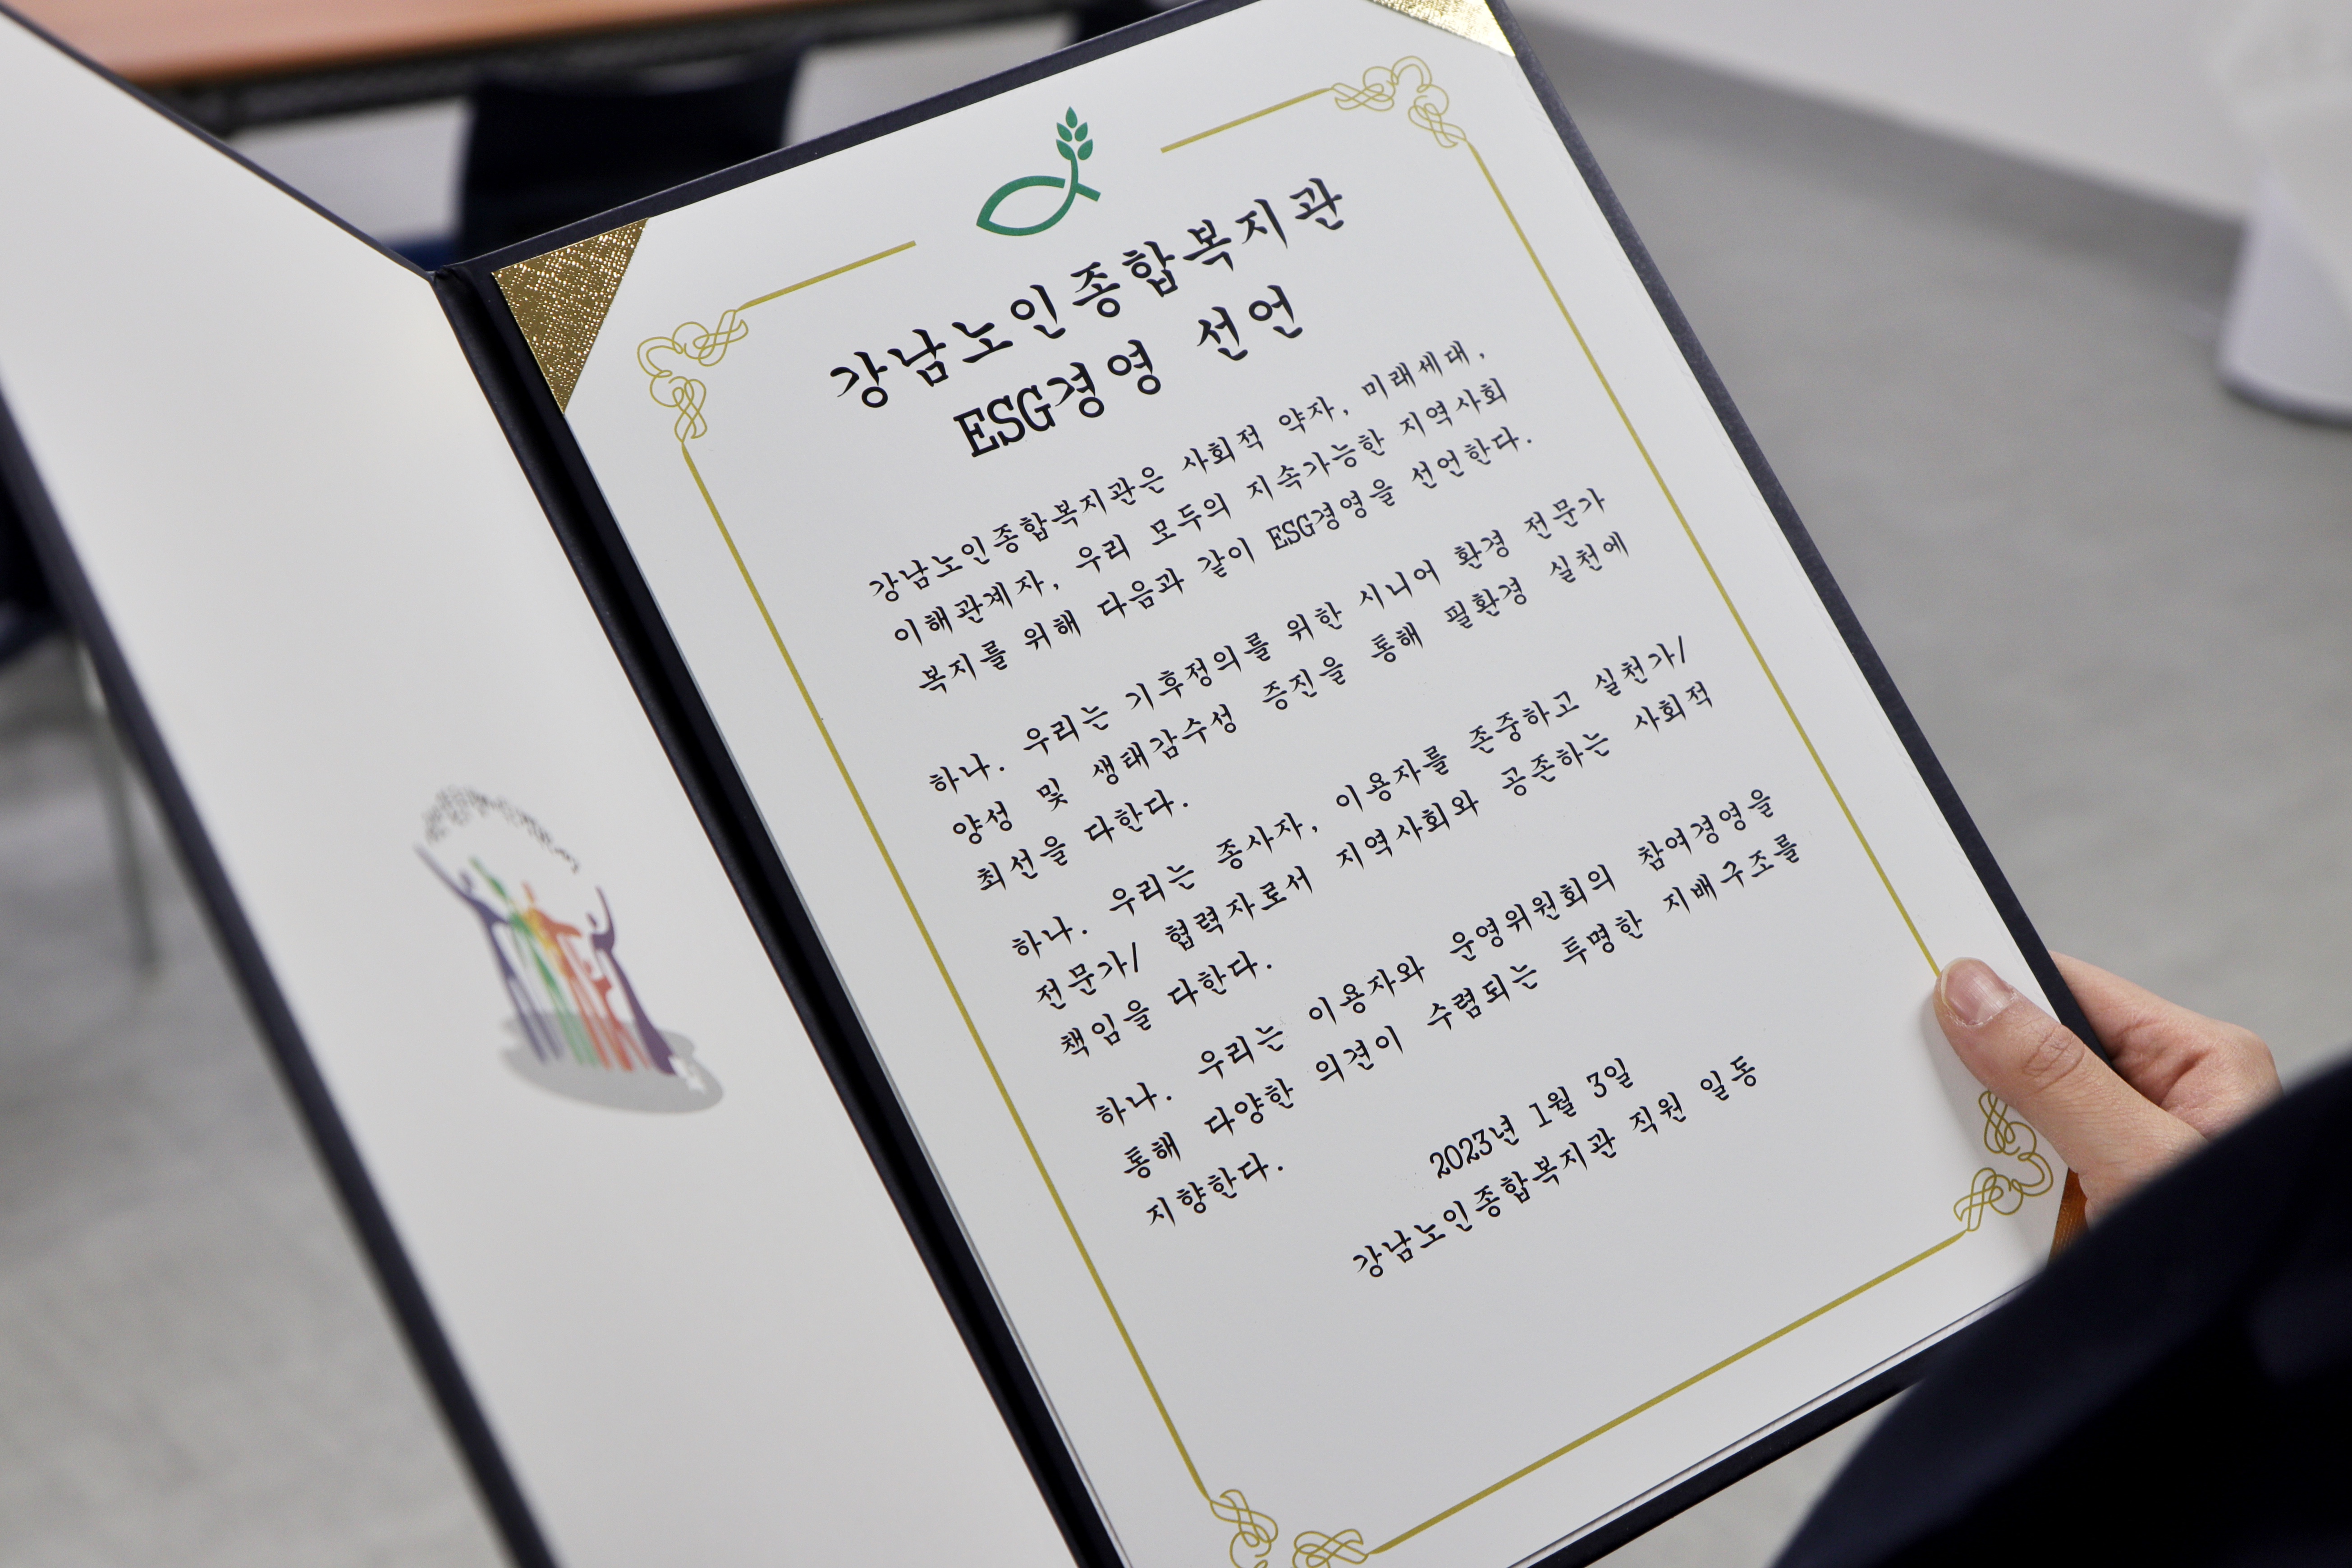 강남노인종합복지관
ESG경영 선언
강남노인종합복지관은 사회적 약자, 미래세대,
이해관계자, 우리 모두의 지속가능한 지역사회
복지를 위해 다음과 같이 ESG경영을 선언한다.
하나. 우리는 기후정의를 위한 시니어 환경 전문가
양성 및 생태감수성 증진을 통해 필환경 실천에
최선을 다한다.
하나. 우리는 종사자, 이용자를 존중하고 실천가/
전문가/ 협력자로서 지역사회와 공존하는 사회적
책임을 다한다.
하나. 우리는 이용자와 운영위원회의 참여경영을
통해 다양한 의견이 수렴되는 투명한 지배구조를
지향한다.
2023년 1월 3일
강남노인종합복지관 직원 일동